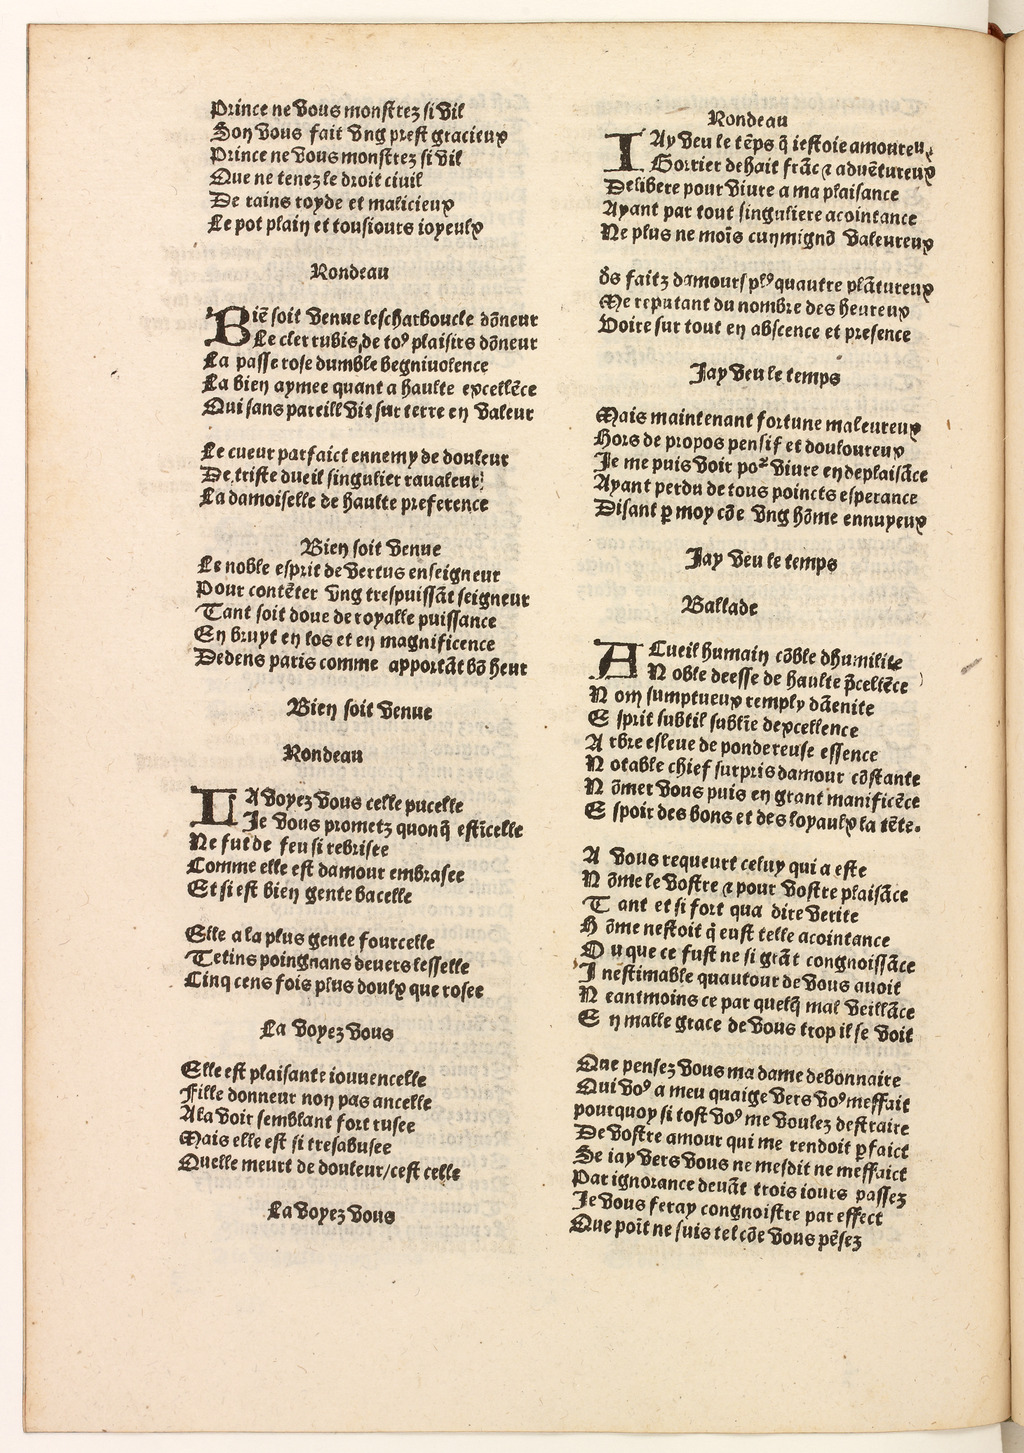 Prince ne vous monstrez si vil
Son vous fait vng prest gracieux
Prince ne vous monstrez si vil
Que ne tenez le droit ciuil
De rains royde et malicieux
Le pot plain et tousiours ioyeulx
Rondeau
Biē soit venue lescharboucle dōneur
Le cler rubis, de toꝰ plaisirs dōneur
La passe rose dumble begniuolence
La bien aymee quant a haulte excellēce
Qui sans pareill vit sur terre en valeur
Le cueur parfaict ennemy de douleur
De triste dueil singulier raualeur
La damoiselle de haulte preference
Bien soit venue
Le noble esprit de vertus enseigneur
Pour contēter vng trespuissāt seigneur
Tant soit doue de royalle puissance
En bruyt en los et en magnificence
Dedens paris comme apportāt bō heur
Bien soit venue
Rondeau
LA voyez vous celle pucelle
Je vous prometz quonq̄ estīcelle
Ne fut de feu si rebrisee
Comme elle est damour embrasee
Et si est bien gente bacelle
Elle a la plus gente fourcelle
Tetins poingnans deuers lesselle
Cinq cens fois plus doulx que rosee
La voyez vous
Elle est plaisante iouuencelle
Fille donneur non pas ancelle
A la voir semblant fort rusee
Mais elle est si tresabusee
Quelle meurt de douleur/cest celle
La voyez vous
Rondeau
IAy veu le tēps q̄ iestoie amoureux
Gorrier dehait frāc ⁊ aduētureux
Delibere pour viure a ma plaisance
Ayant par tout singuliere acointance
Ne plus ne moīs cun mignō valeureux
ds̄ faitz damours plꝰ quautre plātureux
Me reputant du nombre des heureux
Voire sur tout en abscence et presence
Jay veu le temps
Mais maintenant fortune maleureux
Hors de propos pensif et douloureux
Je me puis voir poꝛ viure en deplaisāce
Ayant perdu de tous poincts esperance
Disant ꝑ moy cōe vng hōme ennuyeux
Jay veu le temps
Ballade
ACueil humain cōble dhumilite
N oble deesse de haulte p̄cellēce
N om sumptueux remply dāenite
E sprit subtil sublīe dexcellence
A rbre esleue de pondereuse essence
N otable chief surpris damour cōstante
N ōmer vous puis en grant manificēce
E spoir des bons et des loyaulx la tēte.
A vous requeurt celuy qui a este
N ōme le vostre ⁊ pour vostre plaisāce
T ant et si fort qua dire verite
H ōme nestoit q̄ eust telle acointance
O u que ce fust ne si grāt congnoissāce
I nestimable quautour de vous auoit
N eantmoins ce par quelq̄ mal veillāce
E n malle grace de vous trop il se voit
Que pensez vous ma dame debonnaire
Qui voꝰ a meu quaige vers voꝰ meffait
pourquoy si tost voꝰ me voulez destraire
De vostre amour qui me rendoit ꝑfaict
Se iay vers vous ne mesdit ne meffaict
Par ignorance deuāt trois iours passez
Je vous feray congnoistre par effect
Que poīt ne suis tel cōe vous pēsez